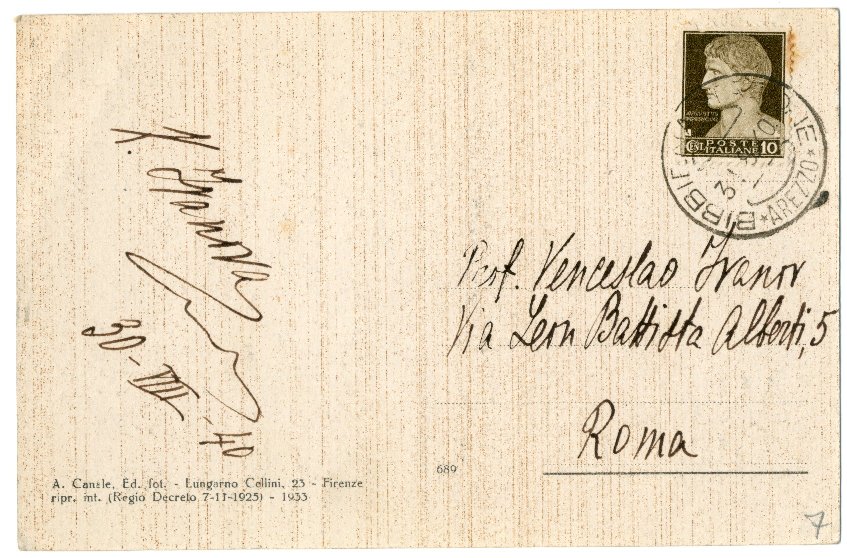 V. Ivanova
30-VIII-40
A. Canale, Ed. fot. - Lungarno Cellini, 23 - Firenze
ripr. int. (Regio Decreto 7-11-1925) - 1933
689
AVGVSTVS
CENT. POSTE ITALIANE 10
BIBBIENA
* AREZZO *
Prof. Venceslao Ivanov
Via Leon Battista Alberti, 5
Roma
7